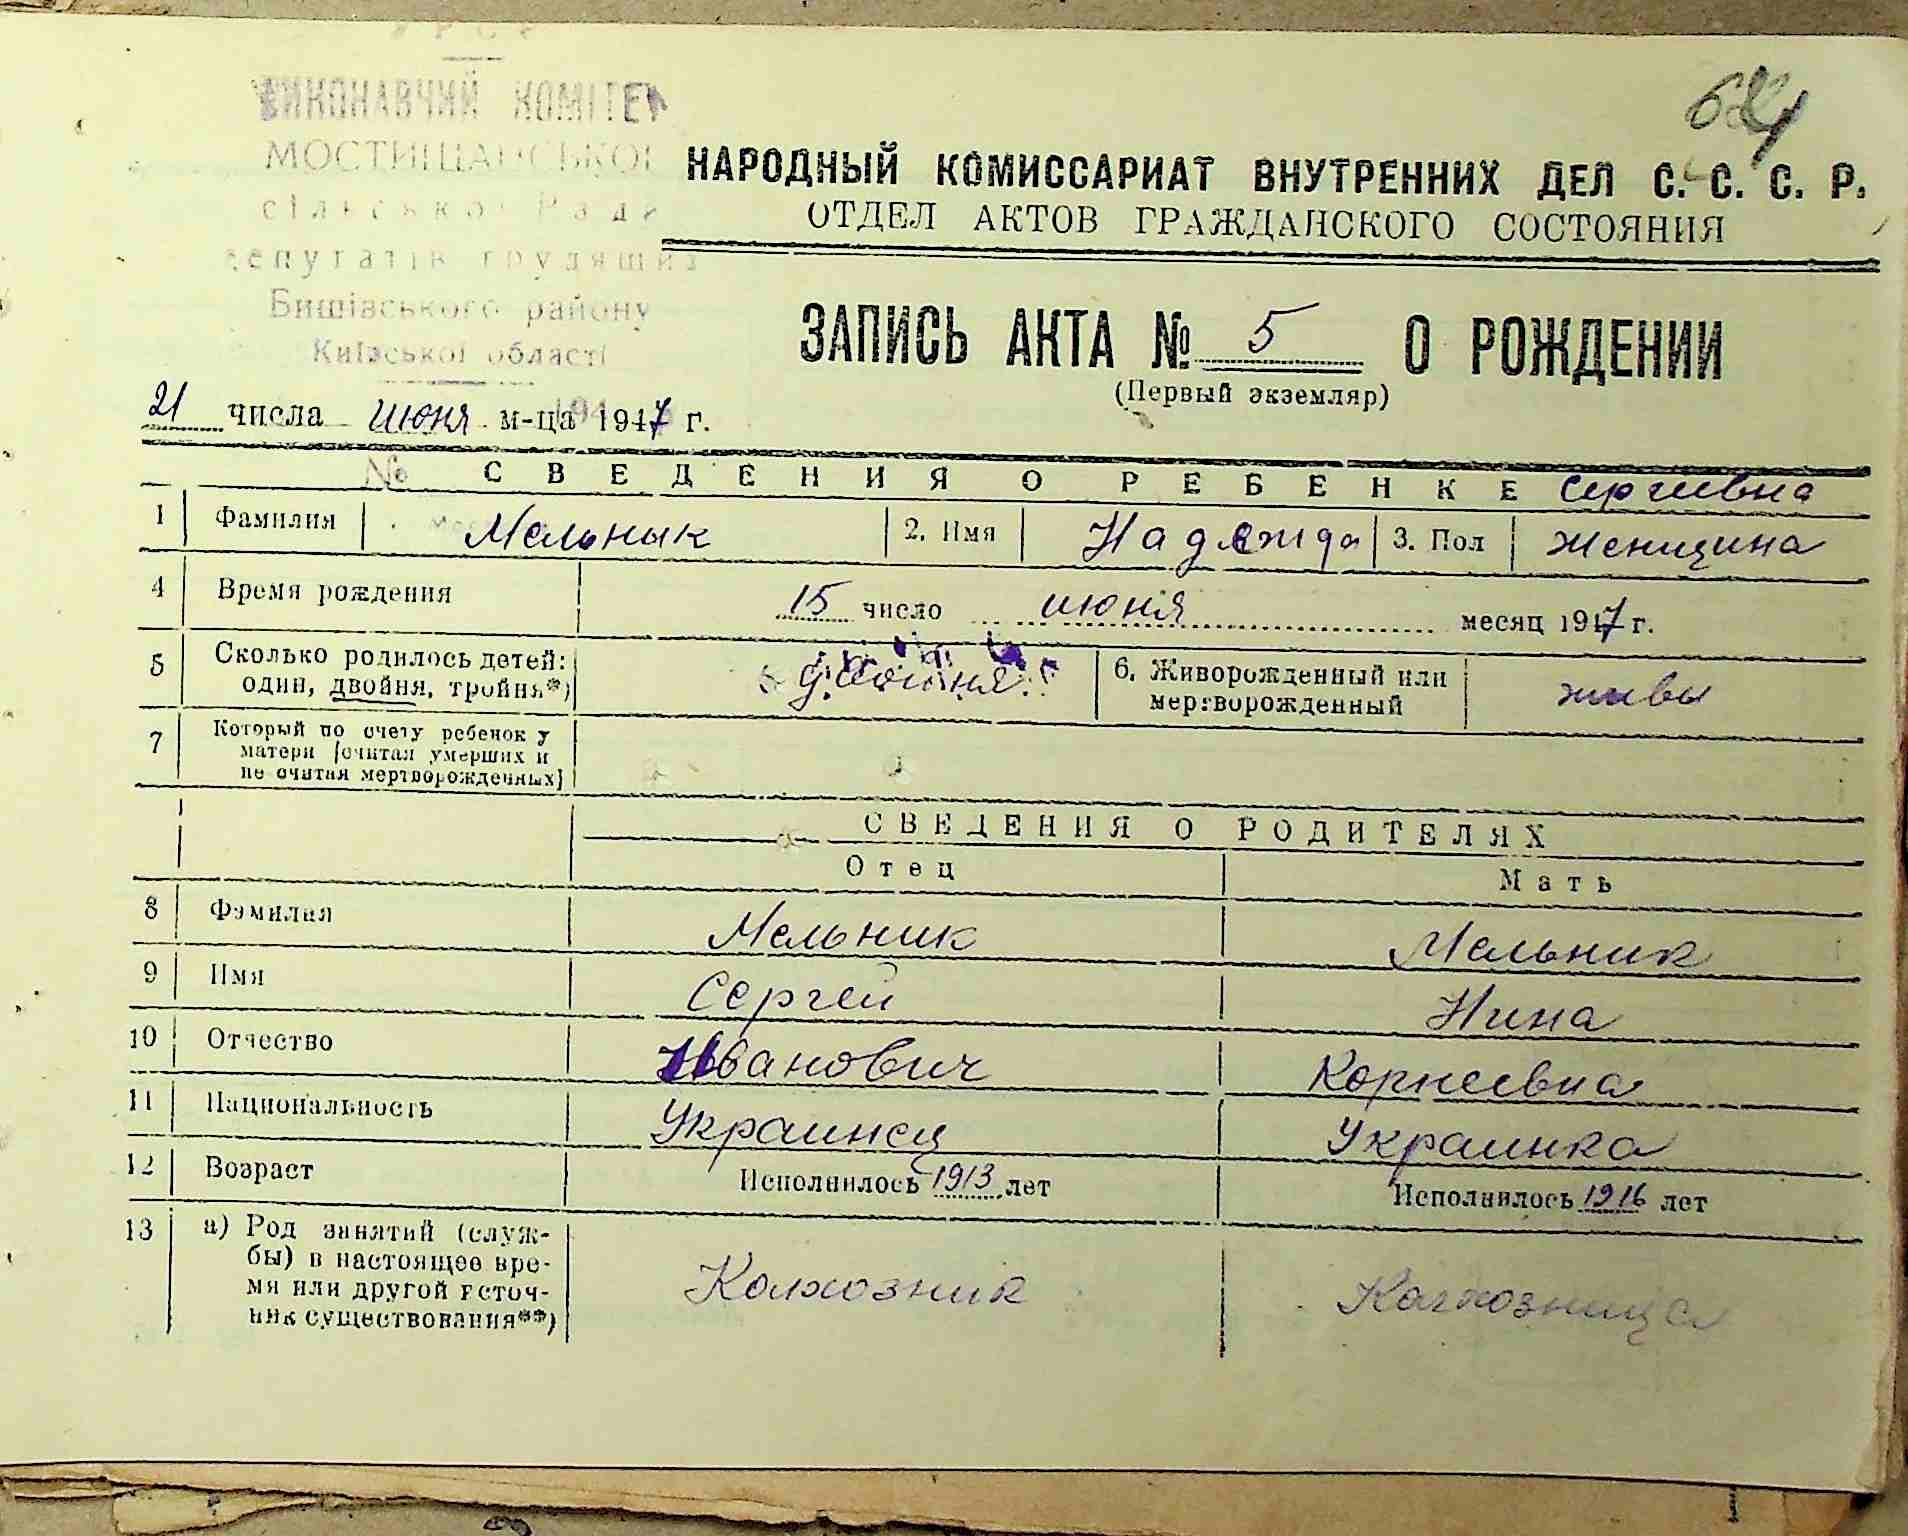 УРСР
ВИКОНАВЧИЙ КОМІТЕТ
МОСТИЩАНСЬКОЇ
сільської Ради
депутатів трудящих
Бишівського району
Київської області
НАРОДНЫЙ КОМИССАРИАТ ВНУТРЕННИХ ДЕЛ С. С. С. Р.
ОТДЕЛ АКТОВ ГРАЖДАНСКОГО СОСТОЯНИЯ
ЗАПИСЬ АКТА № 5 О РОЖДЕНИИ
(Первый экземляр)
21 числа июня м-ца 1947 г.
№
СВЕДЕНИЯ О РЕБЕНКЕ Сергеевна
1 Фамилия Мельнык 2. Имя Надежда 3. Пол женщина
4 Время рождения 15 число июня месяц 1947 г.
5 Сколько родилось детей: один, двойня, тройня*) двойня 6. Живорожденный или мертворожденный живы
7 Который по счету ребенок у матери (считая умерших и не считая мертворожденных)
СВЕДЕНИЯ О РОДИТЕЛЯХ
Отец Мать
8 Фамилия Мельник Мельник
9 Имя Сергей Нина
10 Отчество Иванович Корнеевна
11 Национальность Украинец Украинка
12 Возраст Исполнилось 1913 лет Исполнилось 1916 лет
13 а) Род занятий (служ-
бы) в настоящее вре-
мя или другой источ-
ник существования**) Колхозник Колхозница